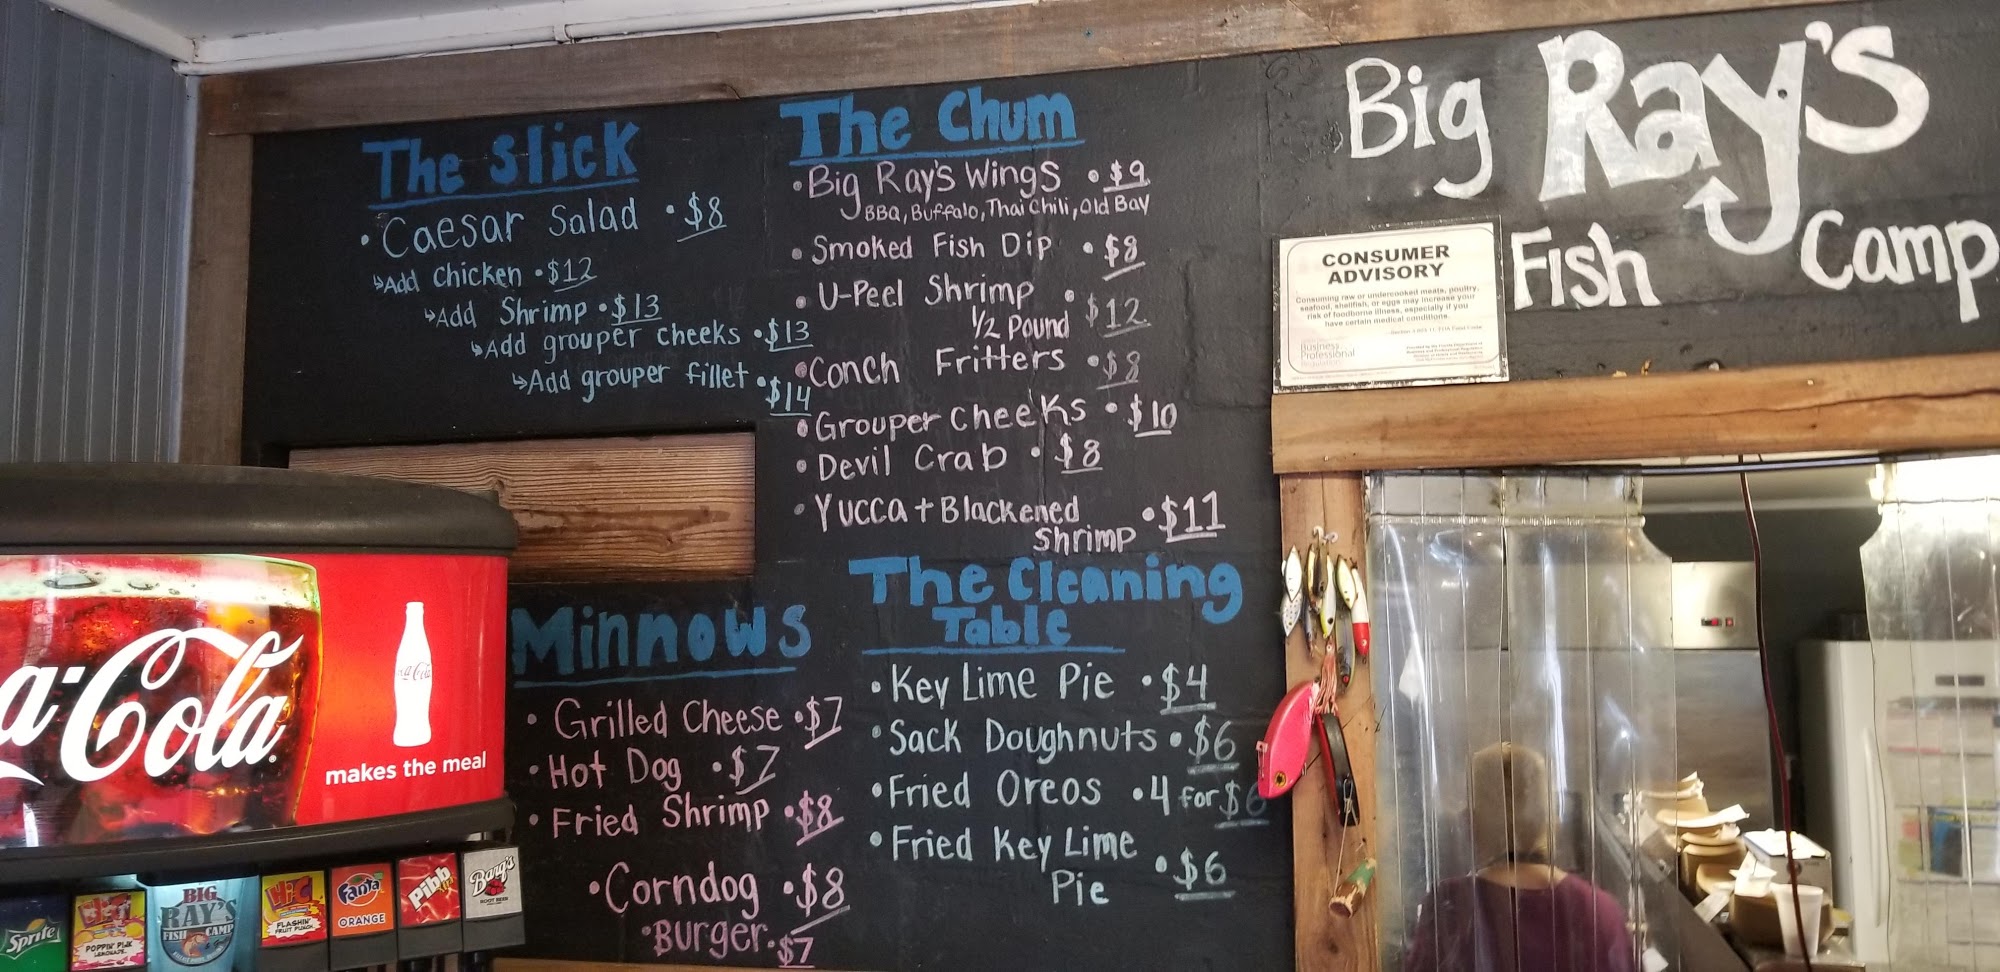 The Slick
• Caesar Salad • $8
↳Add chicken • $12
↳Add Shrimp • $13
↳Add grouper cheeks • $13
↳Add grouper fillet • $14
The Chum
• Big Ray's Wings • $9
BBQ, Buffalo, Thai Chili, Old Bay
• Smoked Fish Dip • $8
• U-Peel Shrimp •
1/2 Pound $12
• Conch Fritters • $8
• Grouper Cheeks • $10
• Devil Crab • $8
• Yucca + Blackened
Shrimp • $11
Minnows
• Grilled Cheese • $7
• Hot Dog • $7
• Fried Shrimp • $8
• Corndog • $8
• Burger • $7
The Cleaning
Table
• Key Lime Pie • $4
• Sack Doughnuts • $6
• Fried Oreos • 4 for $6
• Fried Key Lime
Pie • $6
Big Ray's
Fish Camp
CONSUMER
ADVISORY
Consuming raw or undercooked meats, poultry,
seafood, shellfish, or eggs may increase your
risk of foodborne illness, especially if you
have certain medical conditions.
Business
Professional
Regulation
a-Cola
Coca-Cola
makes the meal
Sprite
Hi-C
POPPIN' PINK
LEMONADE
BIG
RAY'S
FISH CAMP
Hi-C
FLASHIN'
FRUIT PUNCH
FANTA
ORANGE
Pibb
Barq's
ROOT BEER